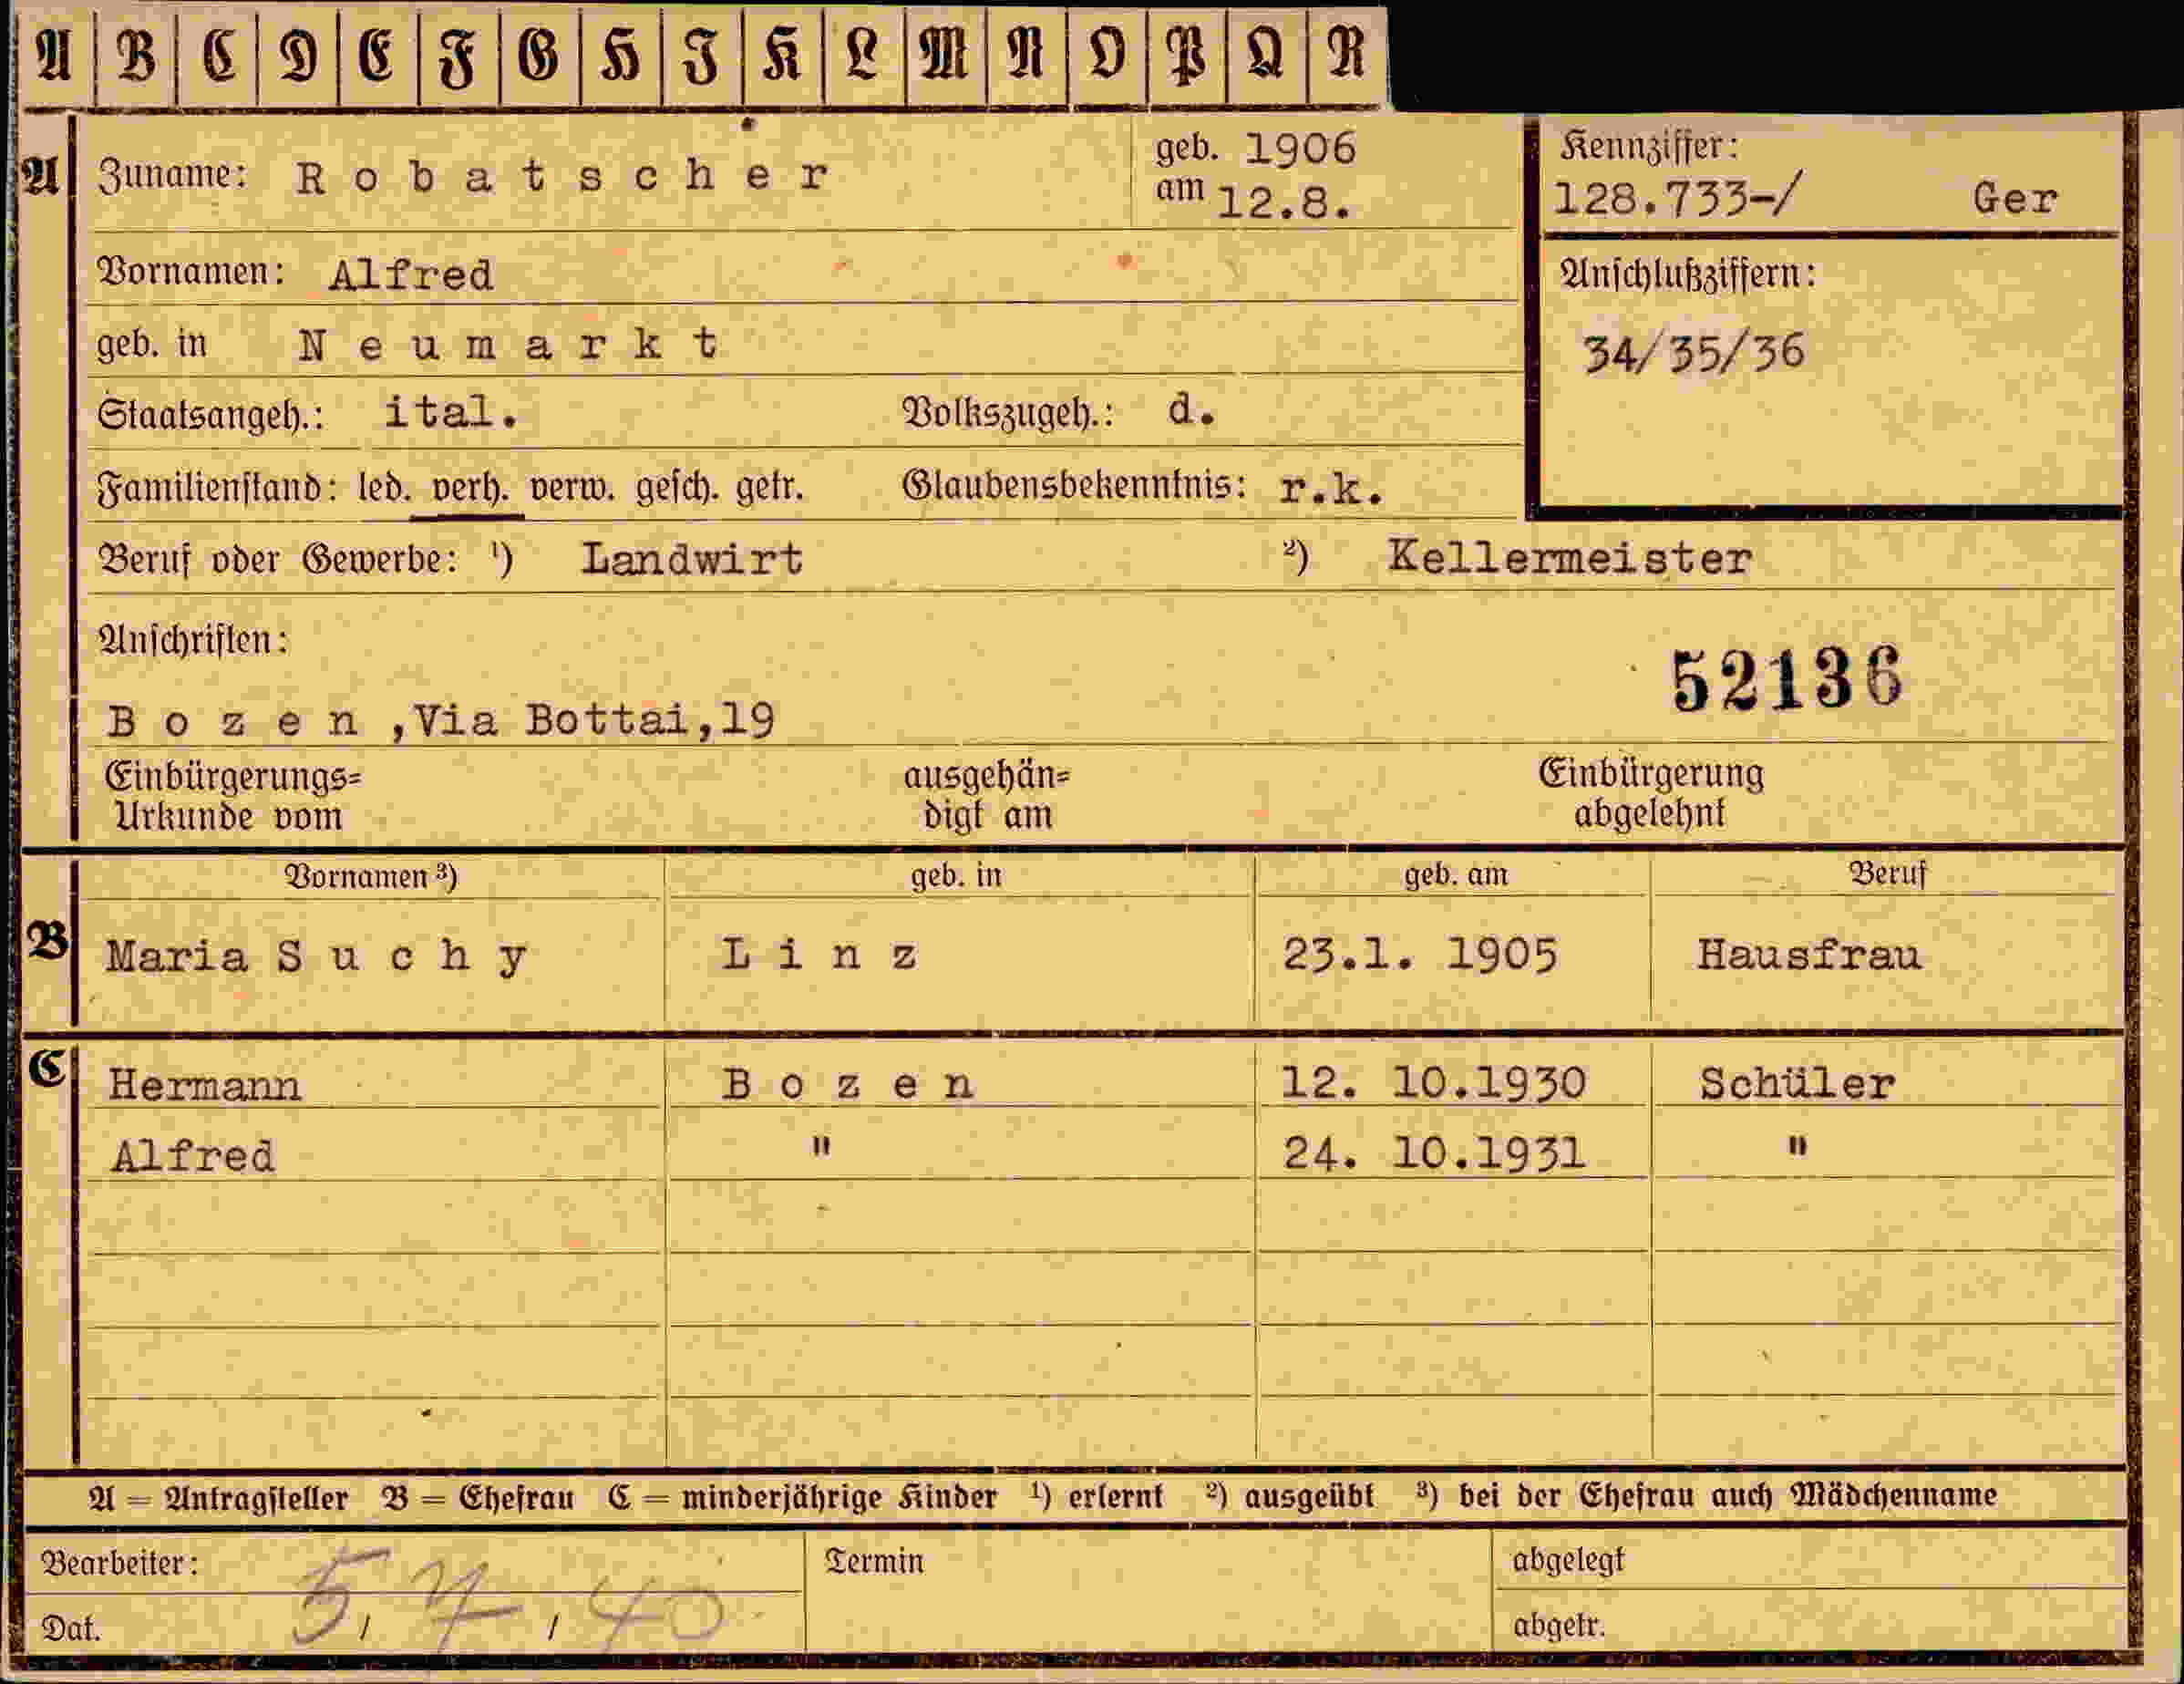 A B C D E F G H I K L M N O P Q R
A Zuname: Robatscher geb. 1906 am 12.8.
Kennziffer:
128.733-/ Ger
Vornamen: Alfred
Anschlußziffern:
34/35/36
geb. in Neumarkt
Staatsangeh.: ital. Volkszugeh.: d.
Familienstand: led. verh. verw. gesch. getr. Glaubensbekenntnis: r.k.
Beruf oder Gewerbe: ¹) Landwirt ²) Kellermeister
Anschriften:
52136
Bozen,Via Bottai,19
Einbürgerungs= ausgehän= Einbürgerung
Urkunde vom digt am abgelehnt
Vornamen ³) geb. in geb. am Beruf
B Maria Suchy Linz 23.1. 1905 Hausfrau
C Hermann Bozen 12. 10.1930 Schüler
Alfred " 24. 10.1931 "
A = Antragsteller B = Ehefrau C = minderjährige Kinder ¹) erlernt ²) ausgeübt ³) bei der Ehefrau auch Mädchenname
Bearbeiter: Termin abgelegt
Dat. 5/7/40 abgetr.